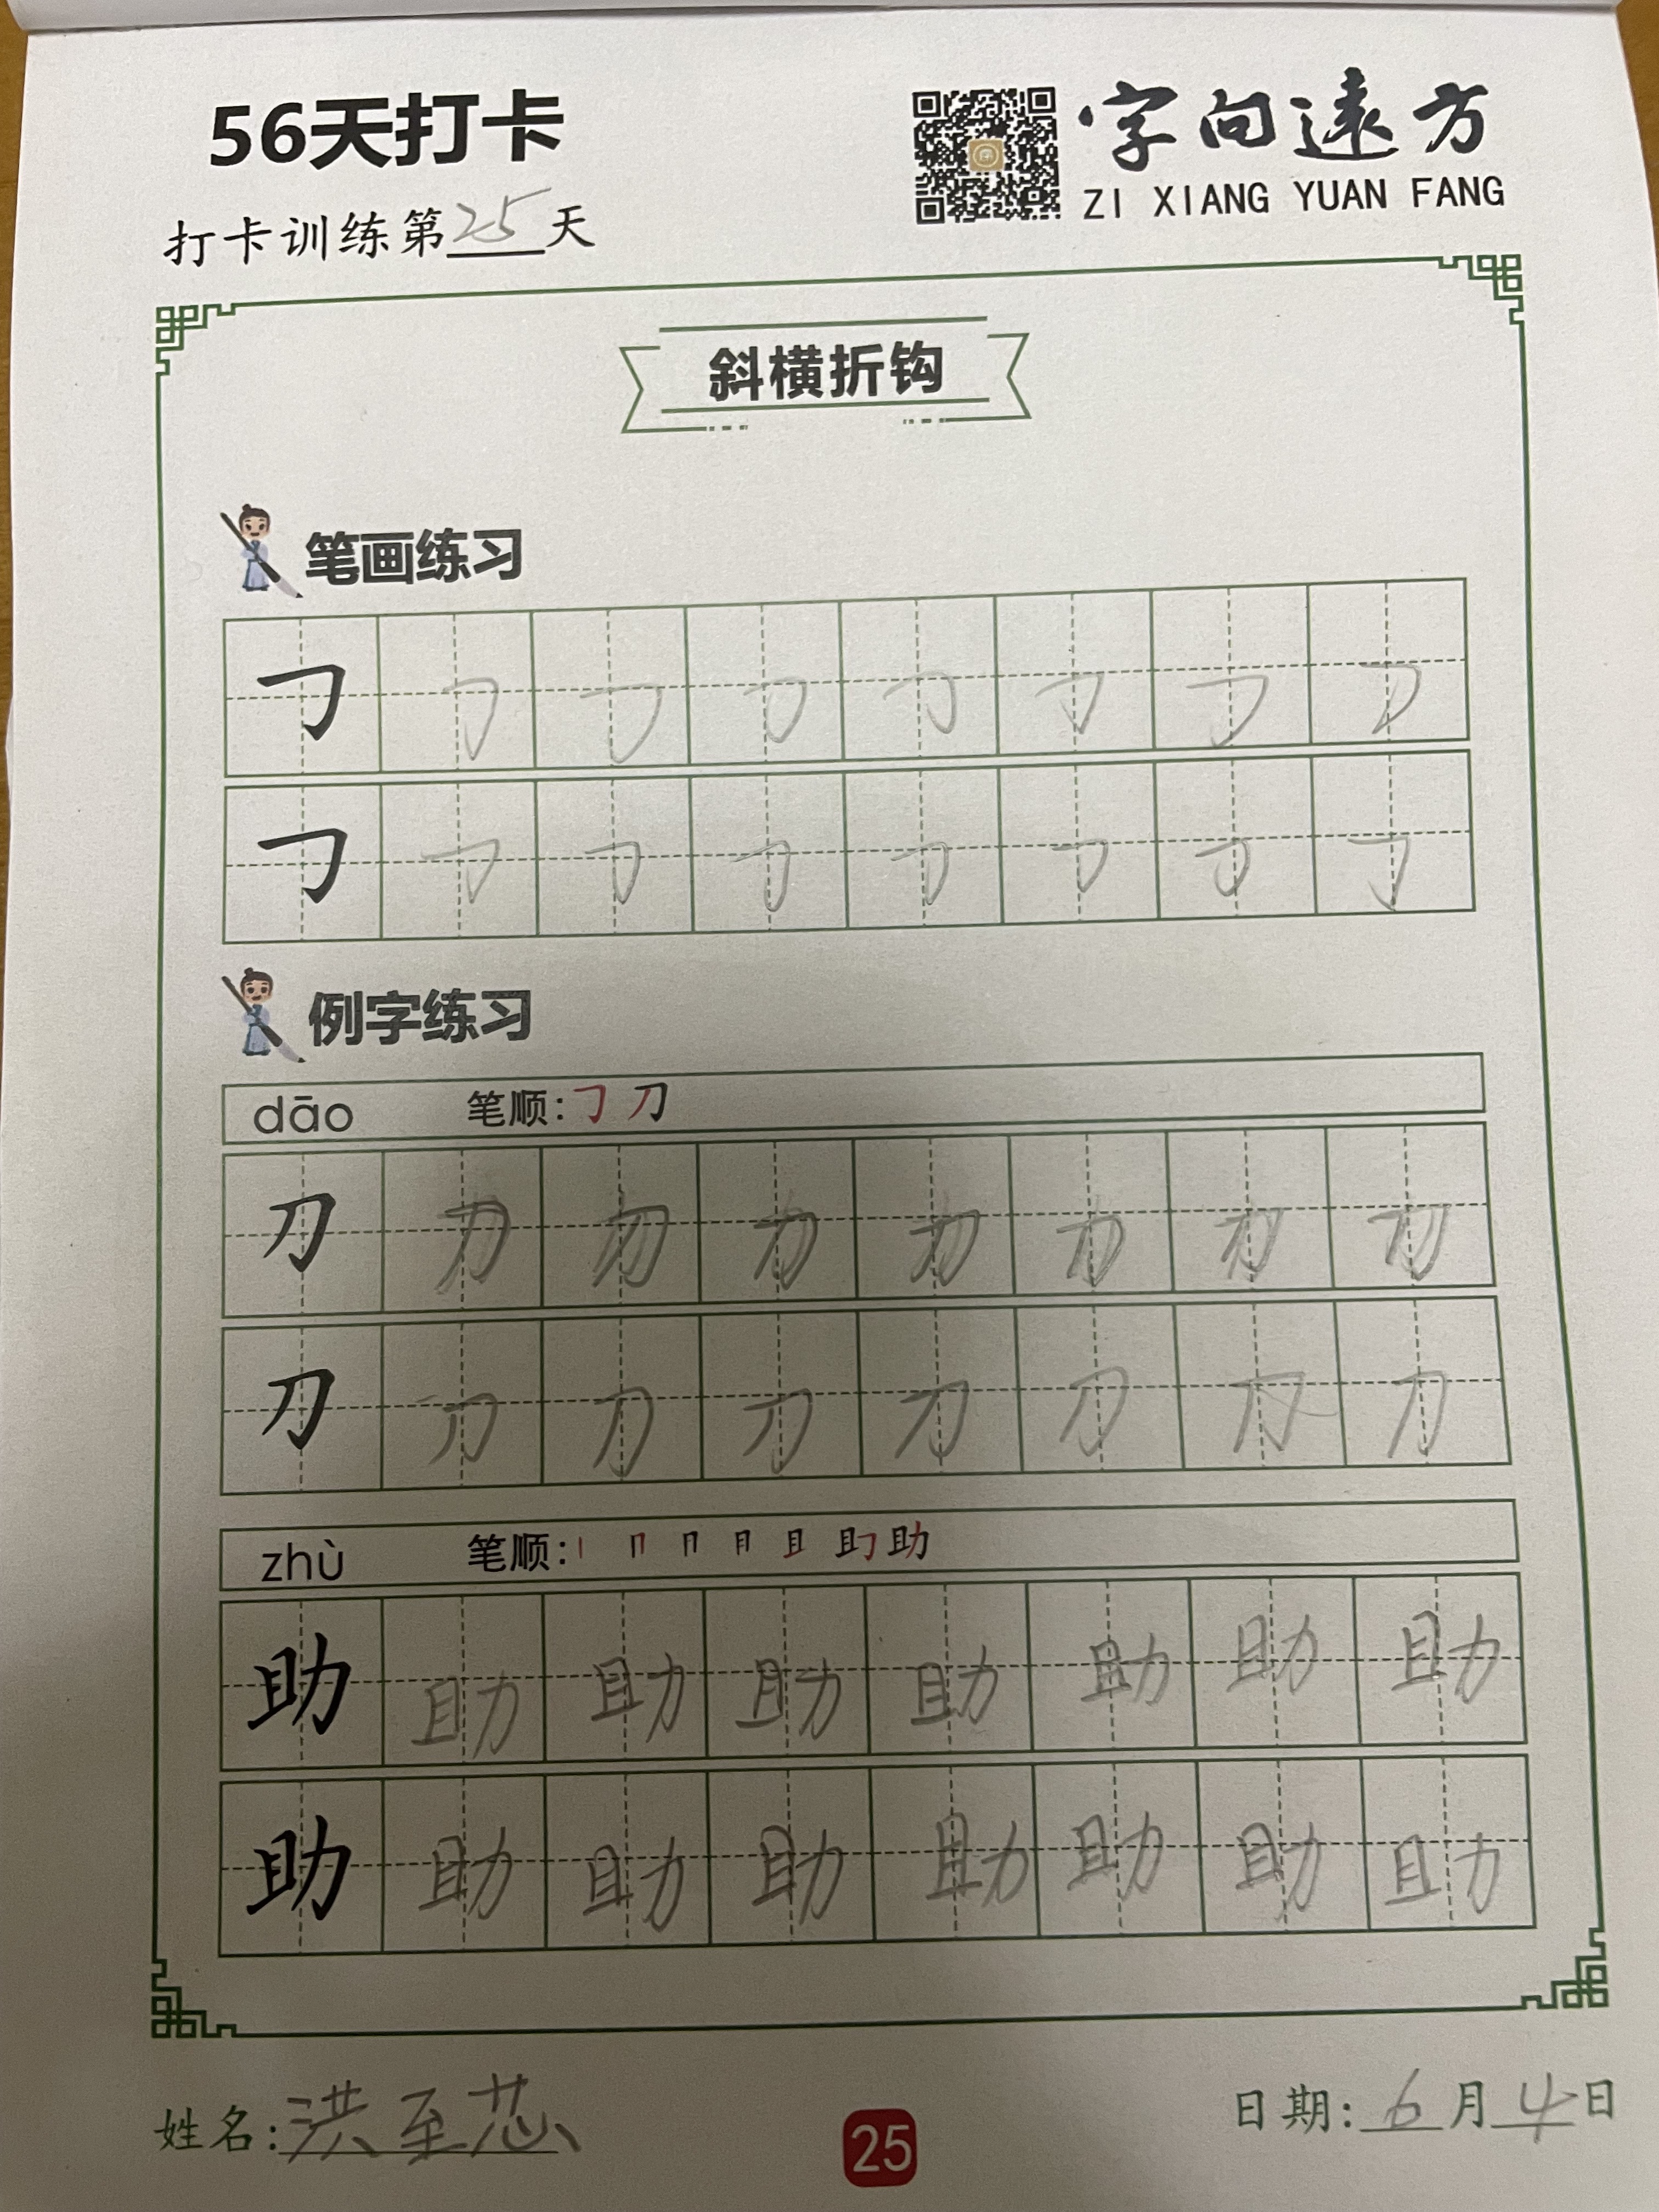 56天打卡
字向遠方
ZI XIANG YUAN FANG
打卡训练第25天
斜横折钩
笔画练习
㇆ ㇆ ㇆ ㇆ ㇆ ㇆ ㇆ ㇆
㇆ ㇆ ㇆ ㇆ ㇆ ㇆ ㇆ ㇆
例字练习
dāo 笔顺:㇆ 刀
刀 力 力 力 力 力 力
刀 刀 刀 刀 刀 刀 刀 刀
zhù 笔顺:丨 冂 冂 月 且 助
助 助 助 助 助 助 助 助
助 助 助 助 助 助 助 助
姓名:洪至芯
25
日期:6月4日